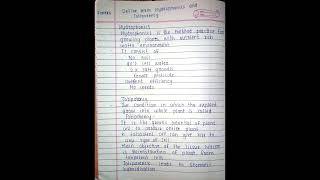 Define term Hydroponics and
Totipotency
Hydroponics
Hydroponics is the method practice for
growing plants with nutrient rich
water environment
It consist of
No soil
less water
growth
Fewer pesticide
nutrient efficiency
No weeds
Totipotency
The condition in which the explant
grow into whole plant is called
Totipotency
It is the genetic potential of plant
cell to produce entire plant
cell can give rise to
any type of cell
Main objective of the tissue culture
is regeneration of plant from
totipotent cell
Totipotency leads to Somatic
hybridisation